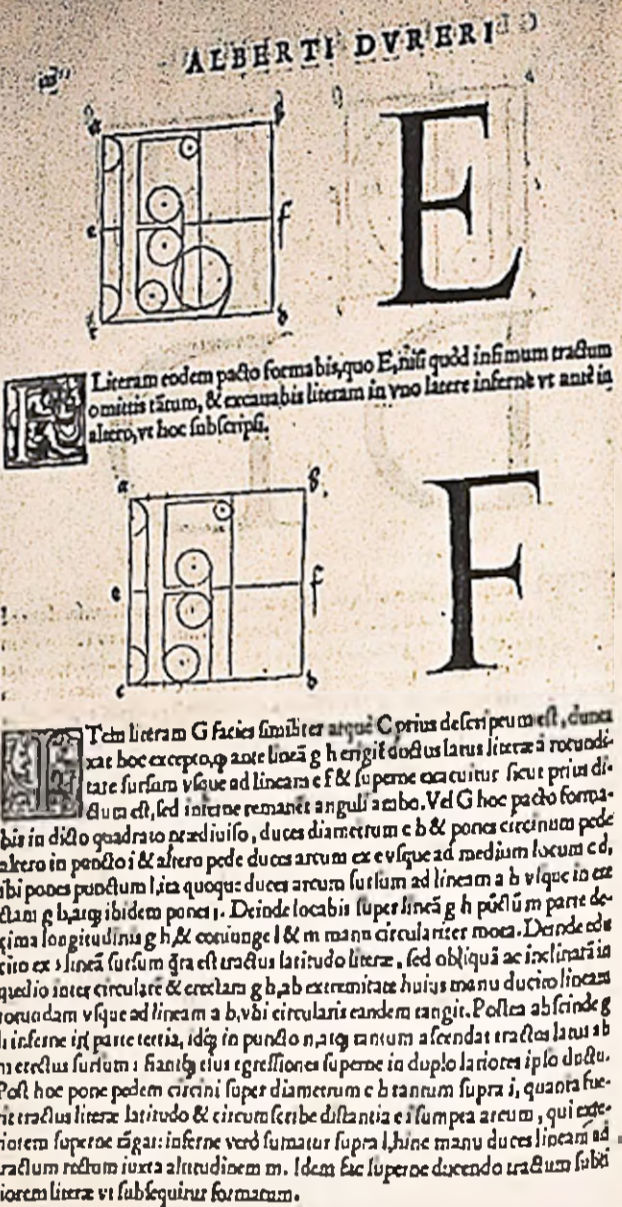 ALBERTI DVRERI
a
e
f
c
b
E
F Literam eodem pacto formabis, quo E, nisi quòd infimum tractum
omittis tãtum, & excauabis literam in vno latere infernè vt antè in
altero, vt hoc subscripsi.
a
g
e
f
c
b
F
ITem literam G facies similiter atque C prius descriptum est, dunta
xat hoc excepto, ꝙ ante lineã g h erigit ductus latus literæ à rotundi-
tate sursum vsque ad lineam e f & superne exacuitur sicut prius di-
ctum est, sed inferne remanet anguli ambo. Vel G hoc pacto forma-
bis in dicto quadrato prædiuiso, duces diametrum c b & pones circinum pede
altero in puncto i & altero pede duces arcum ex e vsque ad medium locum c d,
ibi pones punctum l, ita quoque duces arcum sursum ad lineam a b vsque in ere
ctam g h, atq; ibidem pones Deinde locabis super lineã g h pũctũ m parte de-
cima longitudinis g h, & coniunge l & m manu circulariter mota. Deinde edu
cito ex lineã sursum q̃ta est tractus latitudo literæ, sed obliquã ac inclinatã in
medio inter circularẽ & erectam g h, ab extremitate huius manu ducito lineam
rotundam vsque ad lineam a b, vbi circularis eandem tangit. Postea abscinde g
h inferne in parte tertia, idq; in puncto n, atq; tantum ascendat tractus latus ab
m erectus sursum fiantq; eius egressiones superne in duplo latiores ipso ductu.
Post hoc pone pedem circini super diametrum c b tantum supra i, quanta fue-
rit tractus literæ latitudo & circumscribe distantia e i sumpta arcum, qui exte-
riorem superne tãgat: inferne verò sumatur supra l, hinc manu duces lineam ad
tractum rectum iuxta altitudinem m. Idem fac superne ducendo tractum subti
liorem literæ vt subsequitur formatum.